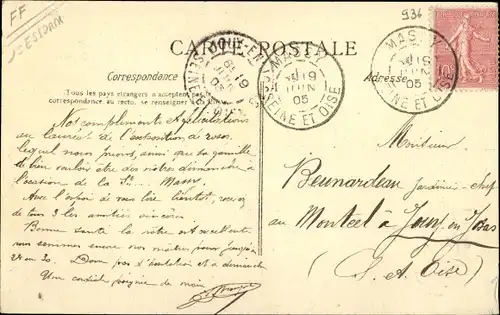 FF
936
CARTE POSTALE
Correspondance
Adresse
Tous les pays étrangers n'acceptent pas
correspondance au recto, se renseigner à la
MASSY
19
JUIN
05
SEINE ET OISE
MASSY
19
JUIN
05
SEINE ET OISE
JOUY-EN
19
05
Mes compliments & félicitations
au lauréat de l'exposition de roses,
lequel nous prions, ainsi que sa famille
de bien vouloir être des nôtres dimanche à
l'occasion de la St Massy.
Avec l'espoir de vous lire bientôt, recevez
de tous 3 les amitiés sincères.
Bonne santé la nôtre est excellente
Donc pas d'hésitation et à dimanche
Un cordial poignée de main
Monsieur
Beunardeau jardinier-chef
au Montcel à Jouy en Josas
(S. et Oise)